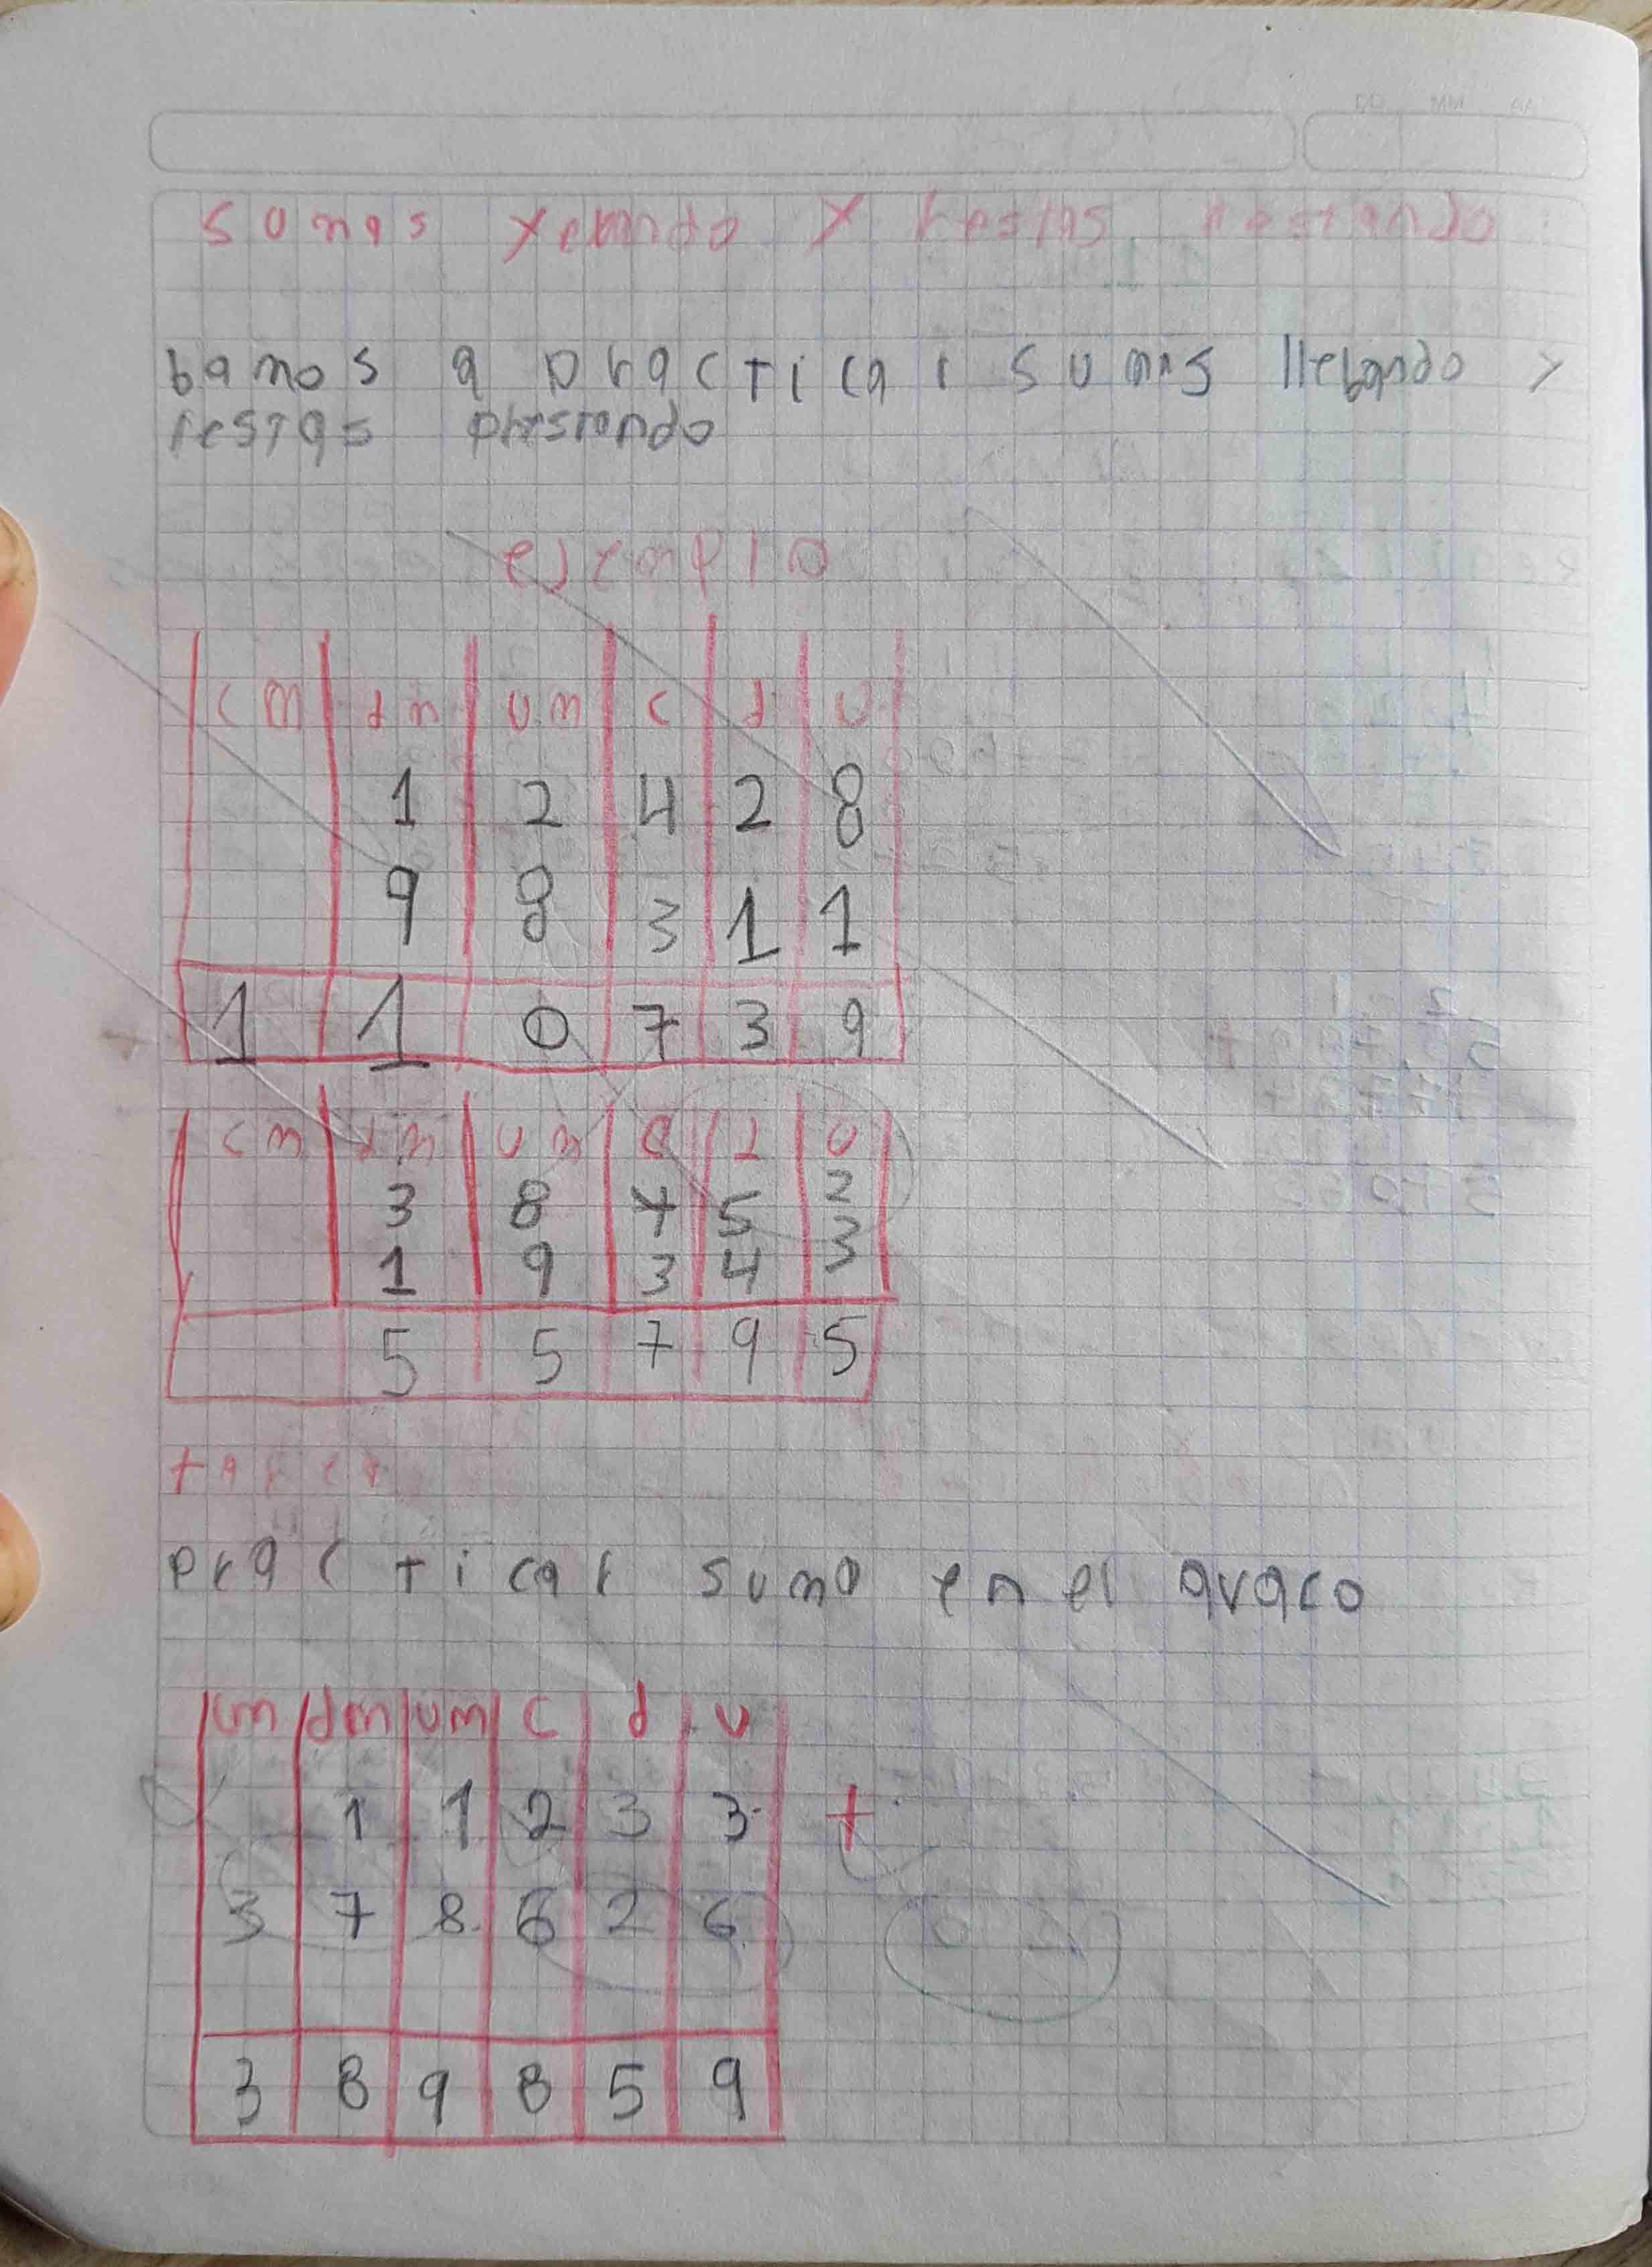 sumas yebando y restas restando
bamos a practicar sumas llebando y
restas prestando
ejemplo
cm dm um c d u
1 2 4 2 8
9 8 3 1 1
1 1 0 7 3 9
cm dm um c d u
3 8 4 5 2
1 9 3 4 3
5 5 7 9 5
tarea
practicar suma en el avaco
cm dm um c d u
1 1 2 3 3 +
3 7 8 6 2 6
3 8 9 8 5 9